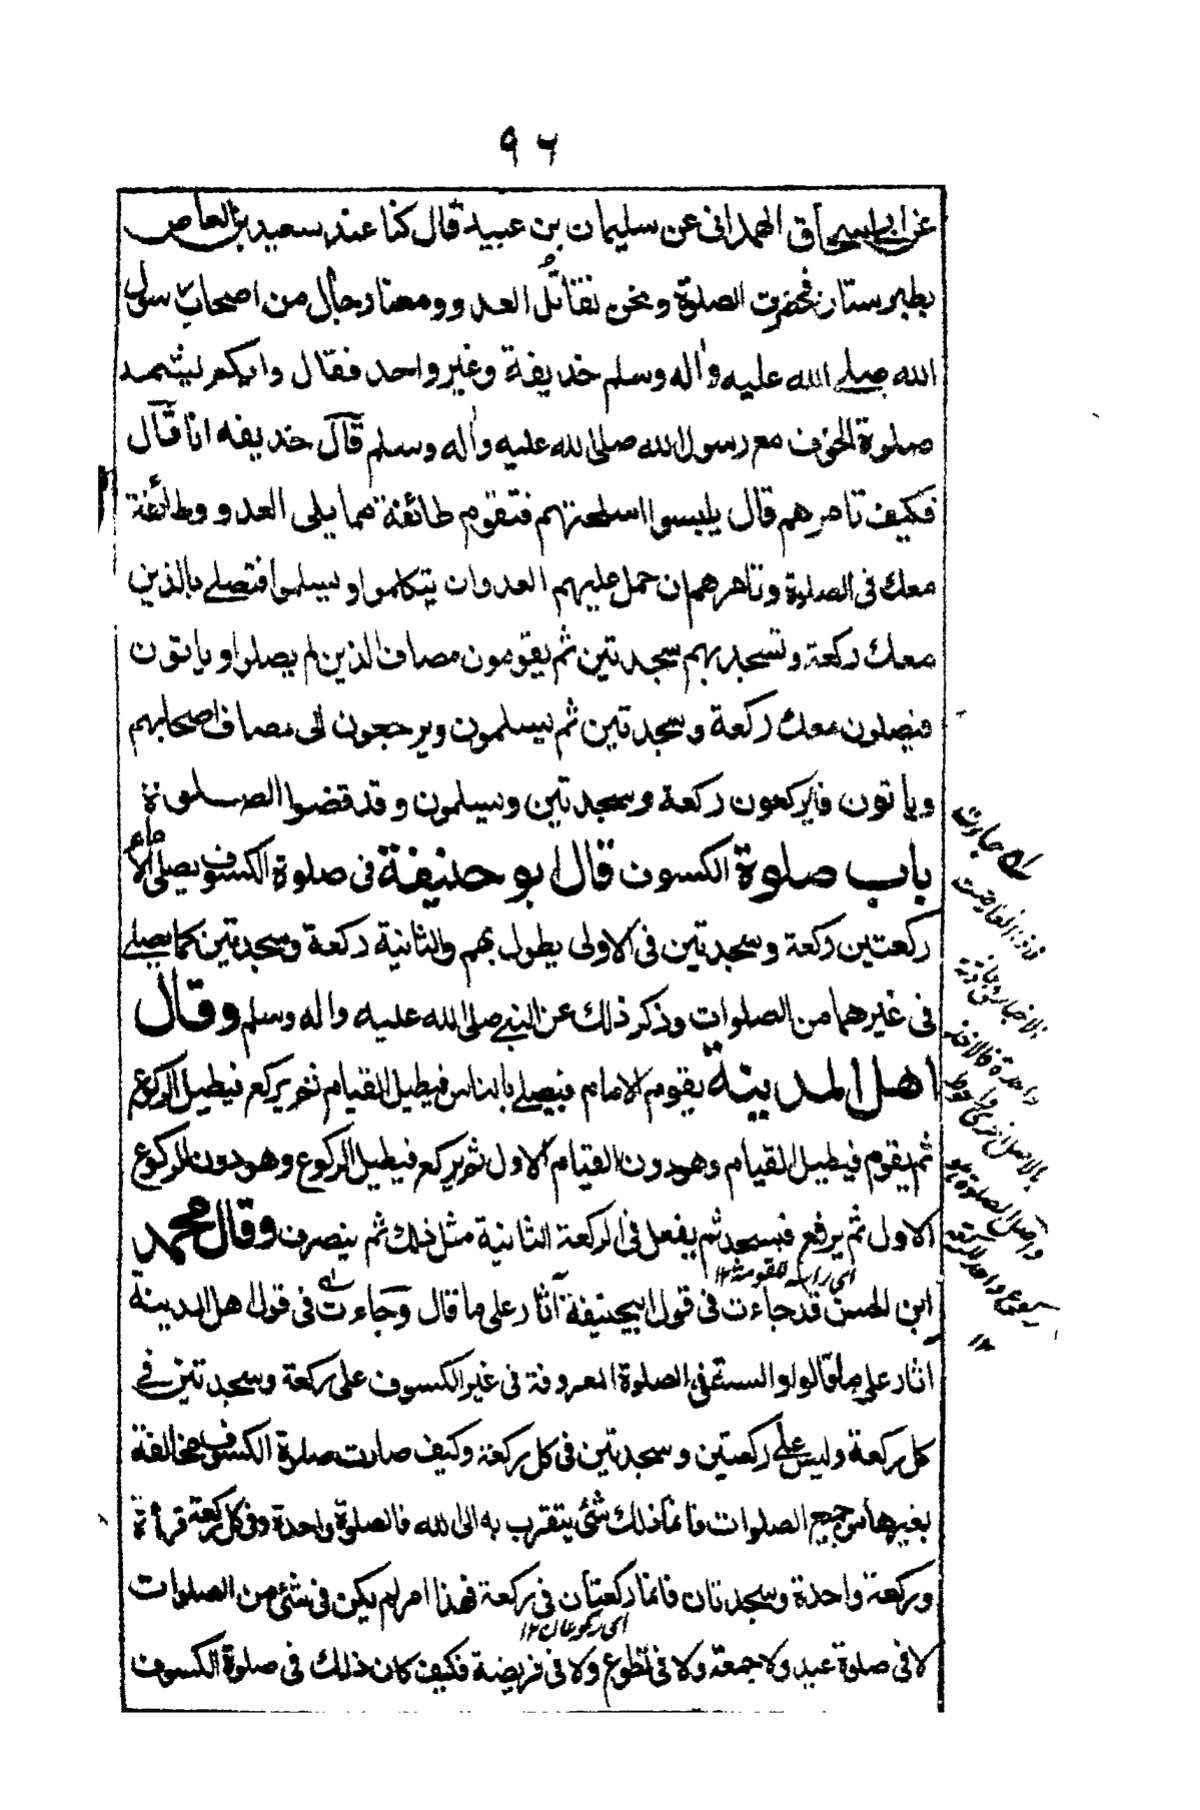 ٩٦
عن ابى اسحاق الهمدانى عن سليمان بن عبيد قال كنا عند سعيد بن العاص
بطبرستان فحضرت الصلوة ونحن نقاتل العدو ومعنا رجال من اصحاب رسول
الله صلے الله عليه واله وسلم حذيفة وغير واحد فقال وايكم ليشهد
صلوة الخوف مع رسول الله صلى الله عليه واله وسلم قال حذيفه انا قال
فكيف تامرهم قال يلبسوا اسلحتهم فتقوم طائفة مما يلى العدو وطائفة
معك فى الصلوة وتامرهم ان حمل عليهم العدو ان يتكلموا ويسلموا فتصلے بالذين
معك ركعة وتسجد بهم سجدتين ثم يقومون مصاف الذين لم يصلوا وياتون
فيصلون معك ركعة وسجدتين ثم يسلمون ويرجعون الى مصاف اصحابهم
وياتون فايركعون ركعة وسجدتين ويسلمون وقد قضوا الصلوة
باب صلوة الكسوف قال ابو حنيفة فى صلوة الكسوف يصلى الامام
ركعتين ركعة وسجدتين فى الاولى يطول بهم والثانية ركعة وسجدتين كما يصلے
فى غيرهما من الصلوات وذكر ذلك عن النبے صلى الله عليه واله وسلم وقال
اهل المدينة يقوم الامام فيصلے بالناس فيطيل القيام ثم يركع فيطيل الركوع
ثم يقوم فيطيل القيام وهو دون القيام الاول ثم يركع فيطيل الركوع وهو دون الركوع
الاول ثم يرفع فيسجد ثم يفعل فى الركعة الثانية مثل ذلك ثم ينصرف وقال محمد
ابن الحسن قد جاءت فى قول ابيحنيفة آثار على ما قال وجاءت فى قول اهل المدينة
اثار على ماقالوا والسنة فى الصلوة المعروفة فى غير الكسوف على ركعة وسجدتين فے
كل ركعة وليس على ركعتين وسجدتين فى كل ركعة وكيف صارت صلوة الكسوف مخالفة
بغيرها من جميع الصلوات فانما ذلك شئ يتقرب به الى الله فالصلوة واحدة وفى كل ركعة قرأة
وركعة واحدة وسجدتان فانما ركعتان فى ركعة فهذا امر لم يكن فى شئ من الصلوات
اى ركوعان ١٢
لا فى صلوة عيد ولا جمعة ولا فى تطوع ولا فى فريضة فكيف كان ذلك فى صلوة الكسوف